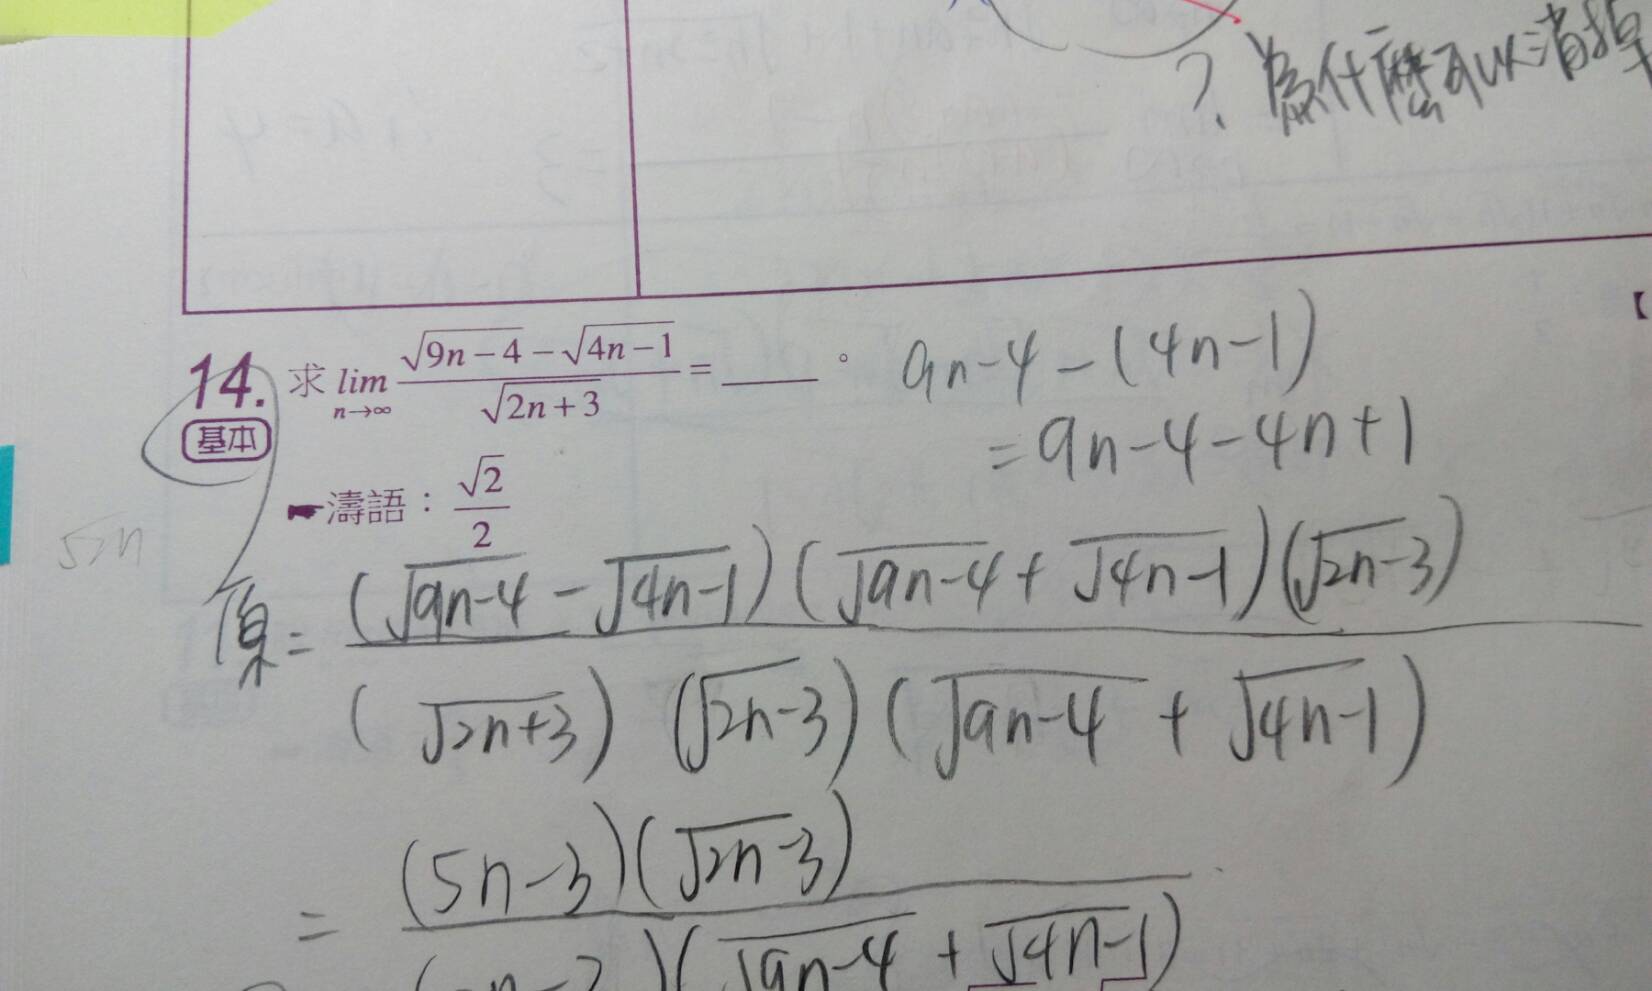 ? 為什麼可以消掉
14. 求 lim n→∞ (√(9n-4) - √(4n-1)) / √(2n+3) = ____ 。
基本
9n-4-(4n-1)
= 9n-4-4n+1
☛濤語： √2 / 2
5n
原 = (√(9n-4) - √(4n-1)) (√(9n-4) + √(4n-1)) (√(2n-3)) / (√(2n+3)) (√(2n-3)) (√(9n-4) + √(4n-1))
= (5n-3)(√(2n-3)) / ( )(√(9n-4) + √(4n-1))